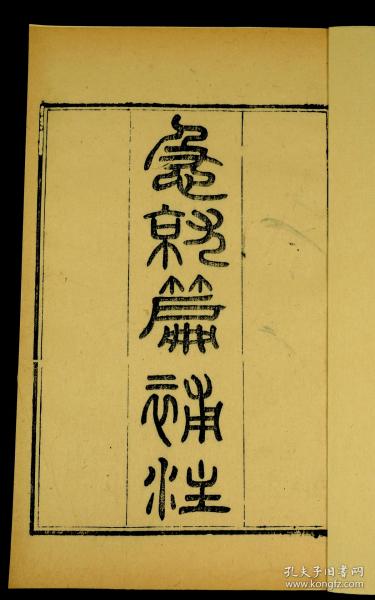 急就篇補注
孔夫子旧书网
www.kongfz.com